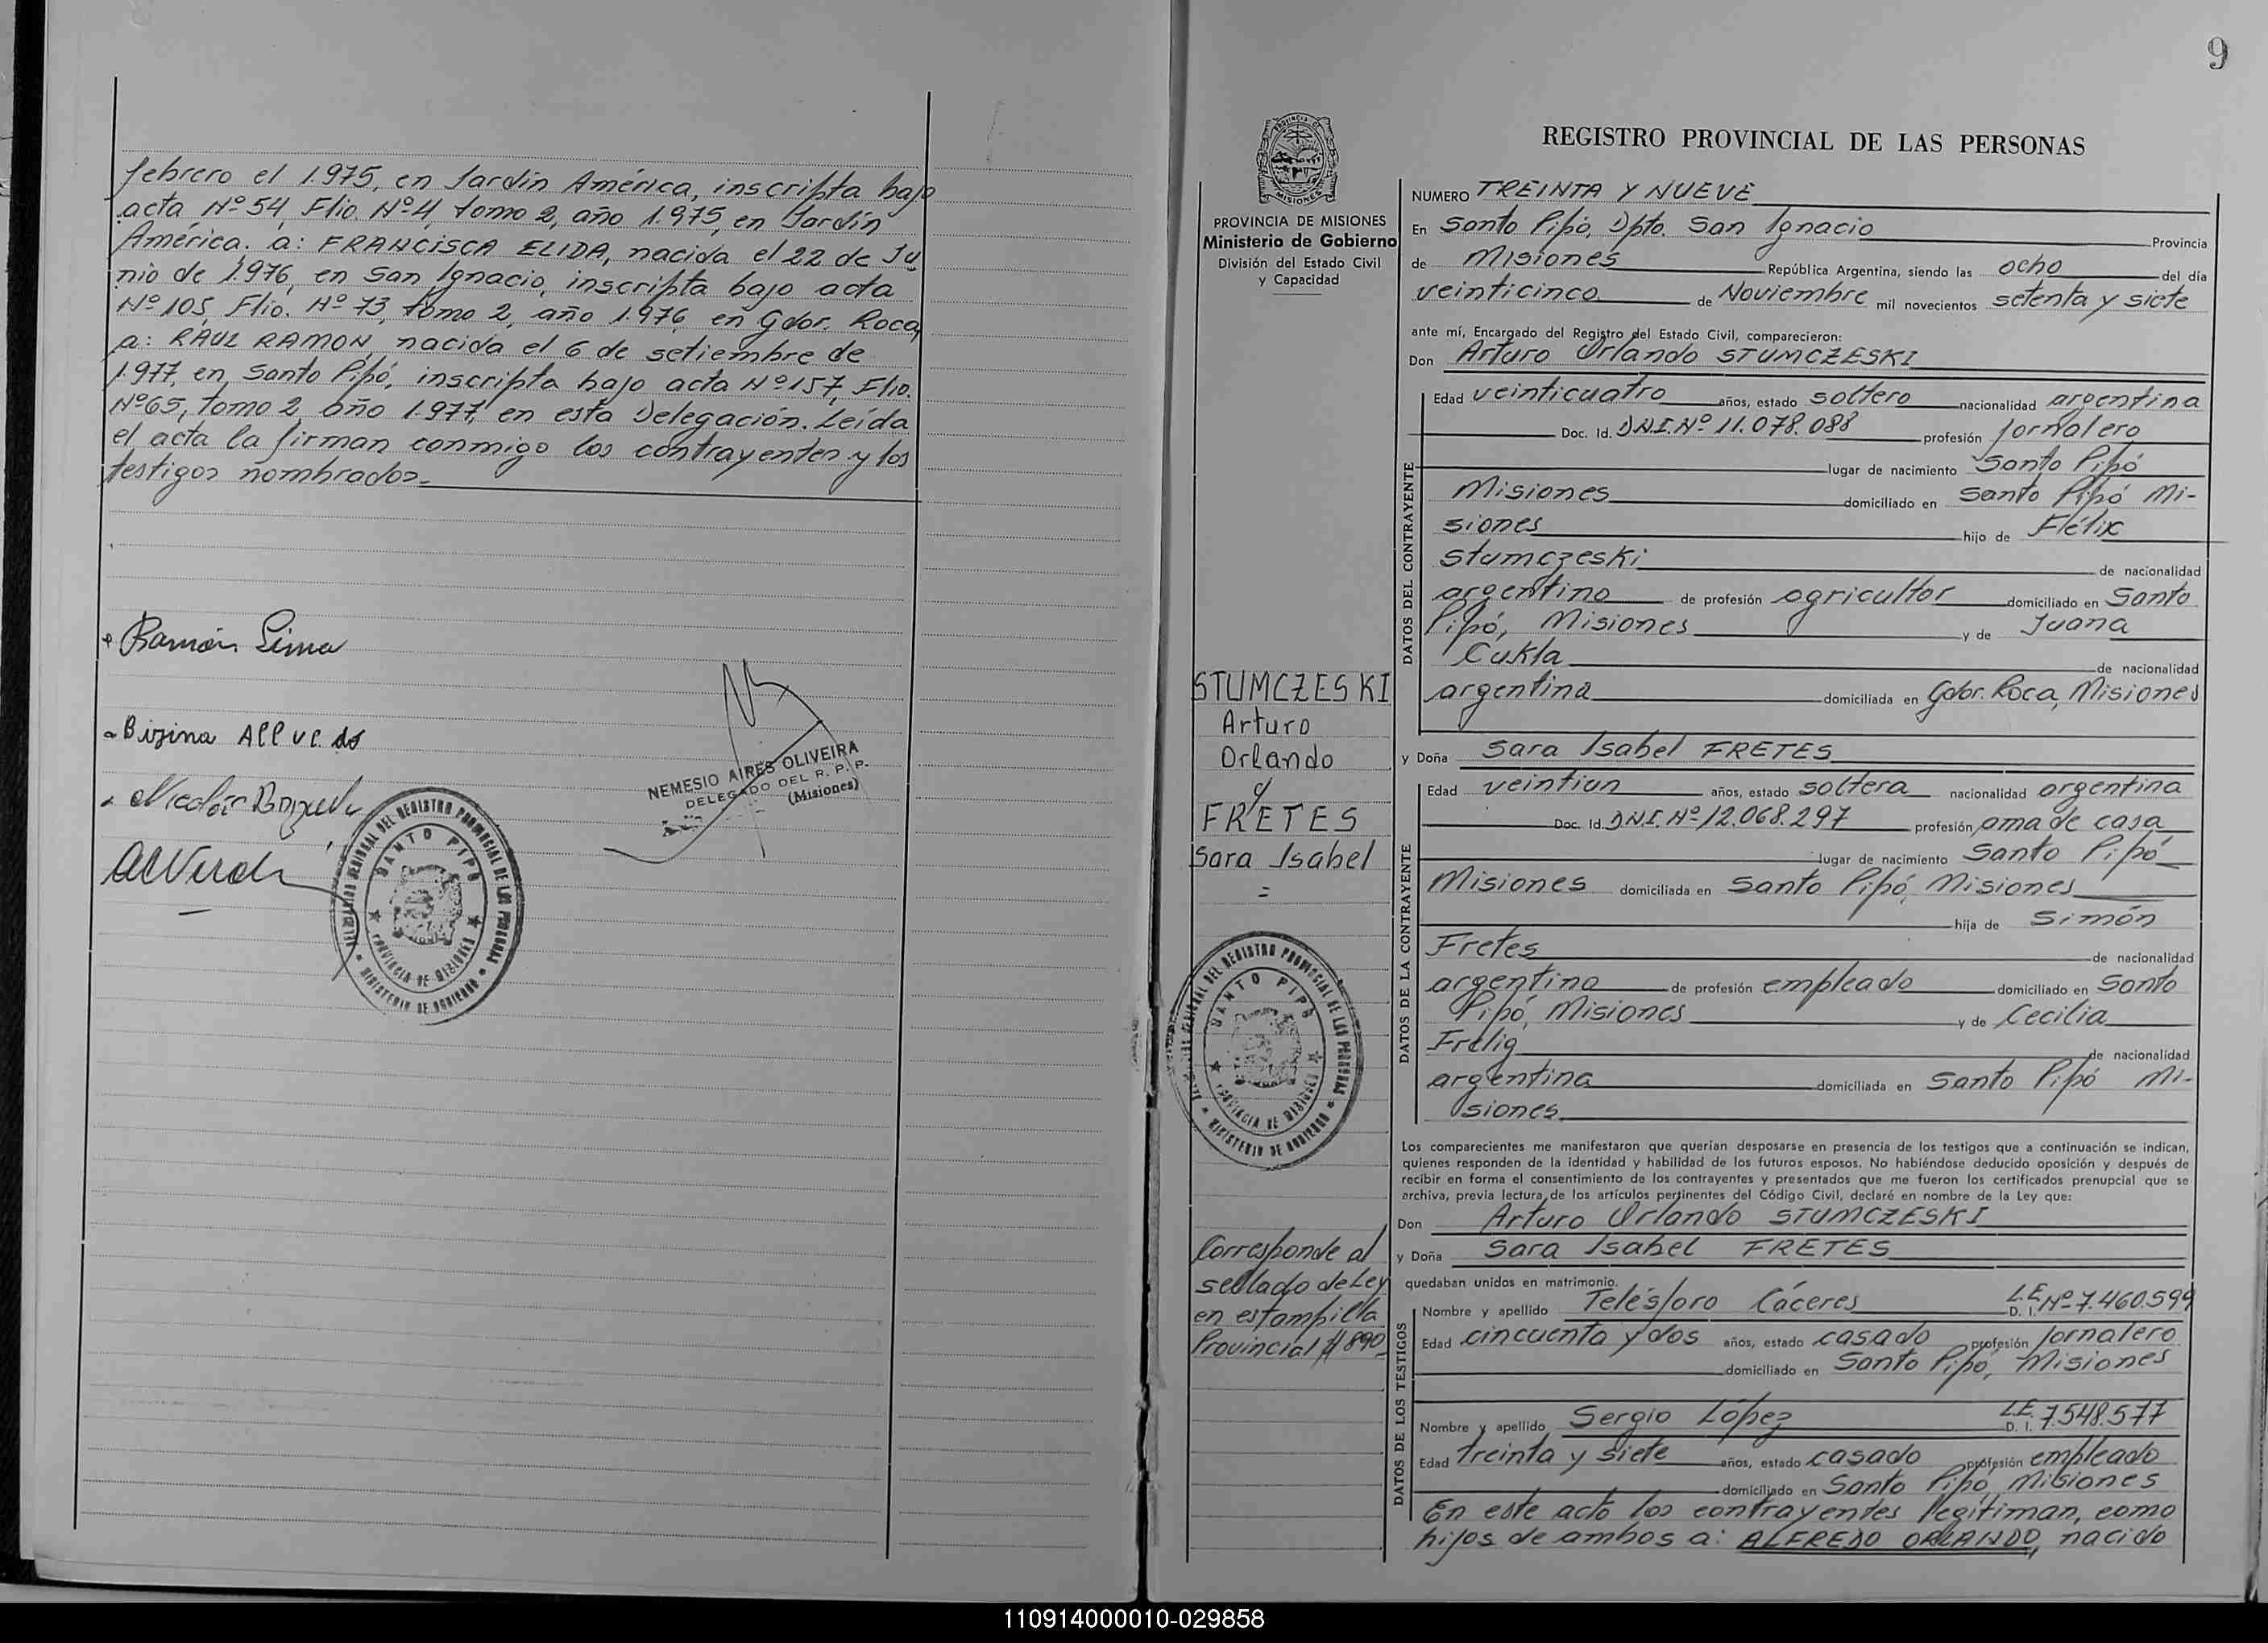 febrero el 1.975, en Jardín América, inscripta bajo
acta Nº 54, Flio. Nº 4, tomo 2, año 1.975, en Jardín
América. a: FRANCISCA ELIDA, nacida el 22 de Ju
nio de 1.976, en San Ignacio, inscripta bajo acta
Nº 105, Flio. Nº 73, tomo 2, año 1.976, en Gdor. Roca,
a: RAUL RAMON nacida el 6 de setiembre de
1.977, en Santo Pipó, inscripta bajo acta Nº 157, Flio.
Nº 65, tomo 2, año 1.977, en esta Delegación. Leída
el acta la firman conmigo los contrayentes y los
testigos nombrados.
Ramón Lima
NEMESIO AIRES OLIVEIRA
DELEGADO DEL R. P. P.
(Misiones)
SANTO PIPO
PROVINCIA DE MISIONES
MINISTERIO DE GOBIERNO
9
REGISTRO PROVINCIAL DE LAS PERSONAS
PROVINCIA DE MISIONES
Ministerio de Gobierno
División del Estado Civil
y Capacidad
NUMERO TREINTA Y NUEVE
En Santo Pipó, Dpto. San Ignacio Provincia
de Misiones República Argentina, siendo las ocho del día
veinticinco de Noviembre mil novecientos setenta y siete
ante mí, Encargado del Registro del Estado Civil, comparecieron:
Don Arturo Orlando STUMCZESKI
DATOS DEL CONTRAYENTE
Edad veinticuatro años, estado soltero nacionalidad argentina
Doc. Id. D.N.I. Nº 11.078.088 profesión Jornalero
lugar de nacimiento Santo Pipó
Misiones domiciliado en Santo Pipó Mi-
siones hijo de Félix
Stumczeski de nacionalidad
argentino de profesión agricultor domiciliado en Santo
Pipó, Misiones y de Juana
Cukla de nacionalidad
argentina domiciliada en Gdor. Roca, Misiones
STUMCZESKI
Arturo
Orlando
c/
FRETES
Sara Isabel
=
y Doña Sara Isabel FRETES
DATOS DE LA CONTRAYENTE
Edad veintiun años, estado soltera nacionalidad argentina
Doc. Id. D.N.I. Nº 12.068.297 profesión ama de casa
lugar de nacimiento Santo Pipó
Misiones domiciliada en Santo Pipó, Misiones
hija de Simón
Fretes de nacionalidad
argentino de profesión empleado domiciliado en Santo
Pipó, Misiones y de Cecilia
Frelig de nacionalidad
argentina domiciliada en Santo Pipó Mi-
siones
SANTO PIPO
PROVINCIA DE MISIONES
MINISTERIO DE GOBIERNO
Los comparecientes me manifestaron que querían desposarse en presencia de los testigos que a continuación se indican,
quienes responden de la identidad y habilidad de los futuros esposos. No habiéndose deducido oposición y después de
recibir en forma el consentimiento de los contrayentes y presentados que me fueron los certificados prenupcial que se
archiva, previa lectura de los artículos pertinentes del Código Civil, declaré en nombre de la Ley que:
Don Arturo Orlando STUMCZESKI
y Doña Sara Isabel FRETES
quedaban unidos en matrimonio.
Corresponde al
sellado de Ley
en estampilla
Provincial $ 890
DATOS DE LOS TESTIGOS
Nombre y apellido Telésforo Cáceres D. I. L.E. Nº 7.460.594
Edad cincuenta y dos años, estado casado profesión Jornalero
domiciliado en Santo Pipó, Misiones
Nombre y apellido Sergio López D. I. L.E. 7.548.577
Edad treinta y siete años, estado casado profesión empleado
domiciliado en Santo Pipó, Misiones
En este acto los contrayentes legitiman, como
hijos de ambos a: ALFREDO ORLANDO, nacido
110914000010-029858